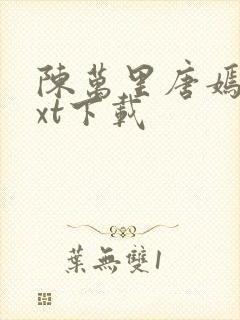 陳萬里唐嫣
xt下載
葉無雙1